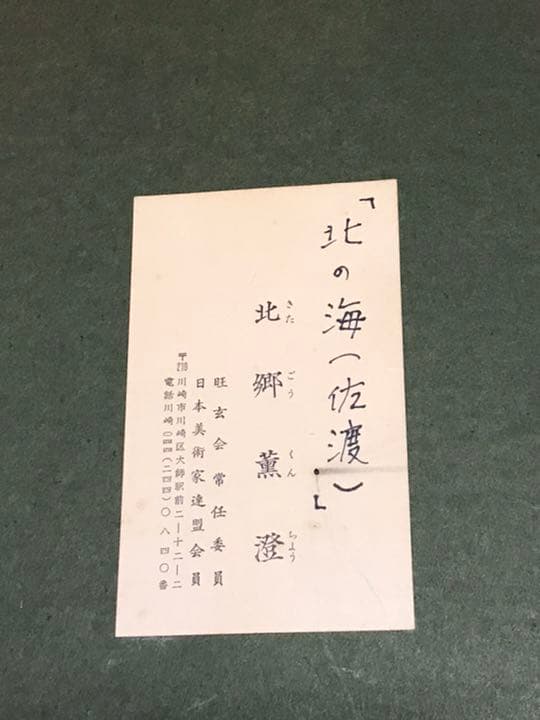 「北の海(佐渡)」
北郷薫澄
きたごうくんちょう
旺玄会常任委員
日本美術家連盟会員
〒210川崎市川崎区大師駅前二ー十二ー二
電話川崎〇四四(二四四)〇八四〇番